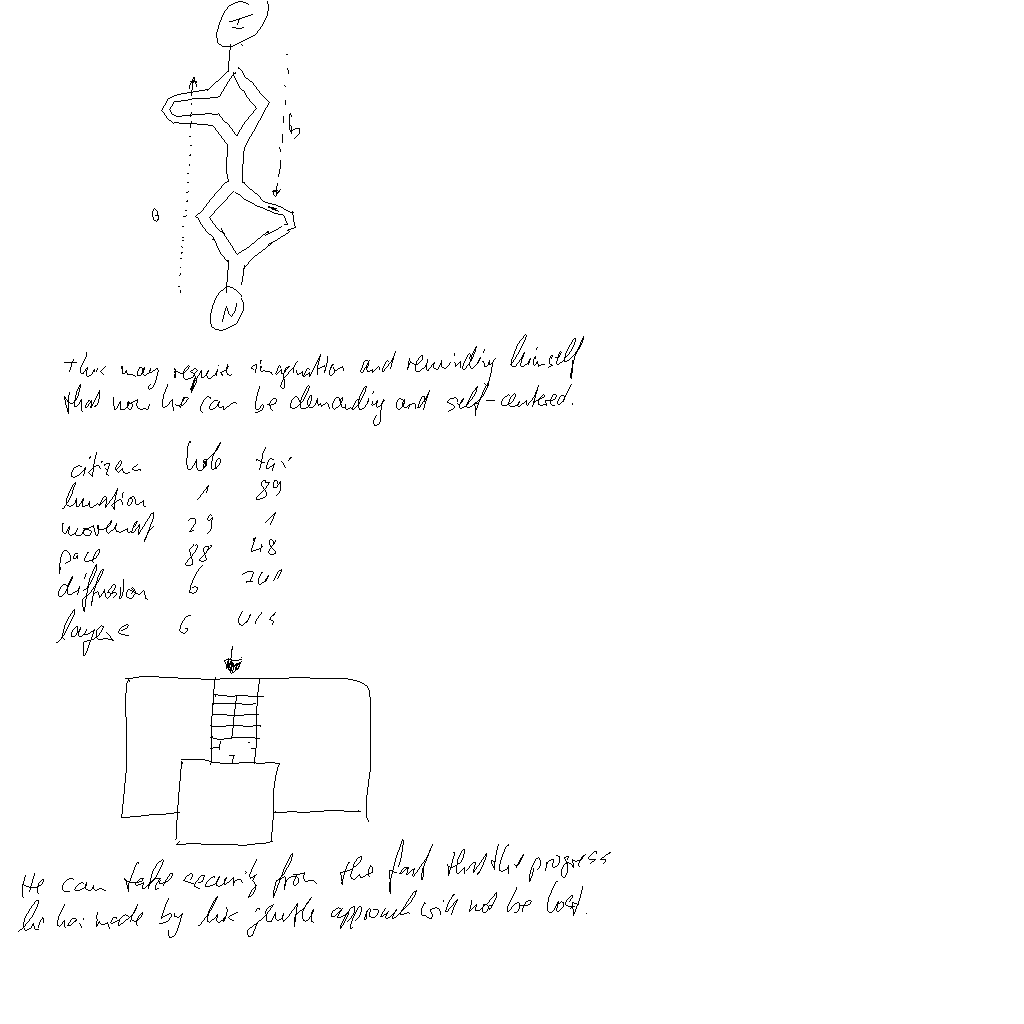 I
b
a
N
This may require imagination and reminding himself
that now he can be demanding and self-centered.
citizens hole tax
lunation 1 89
movement 29 1
pace 88 48
diffusion 6
layers 6
He can take security from the fact that the progress
he has made by his gentle approach will not be lost.